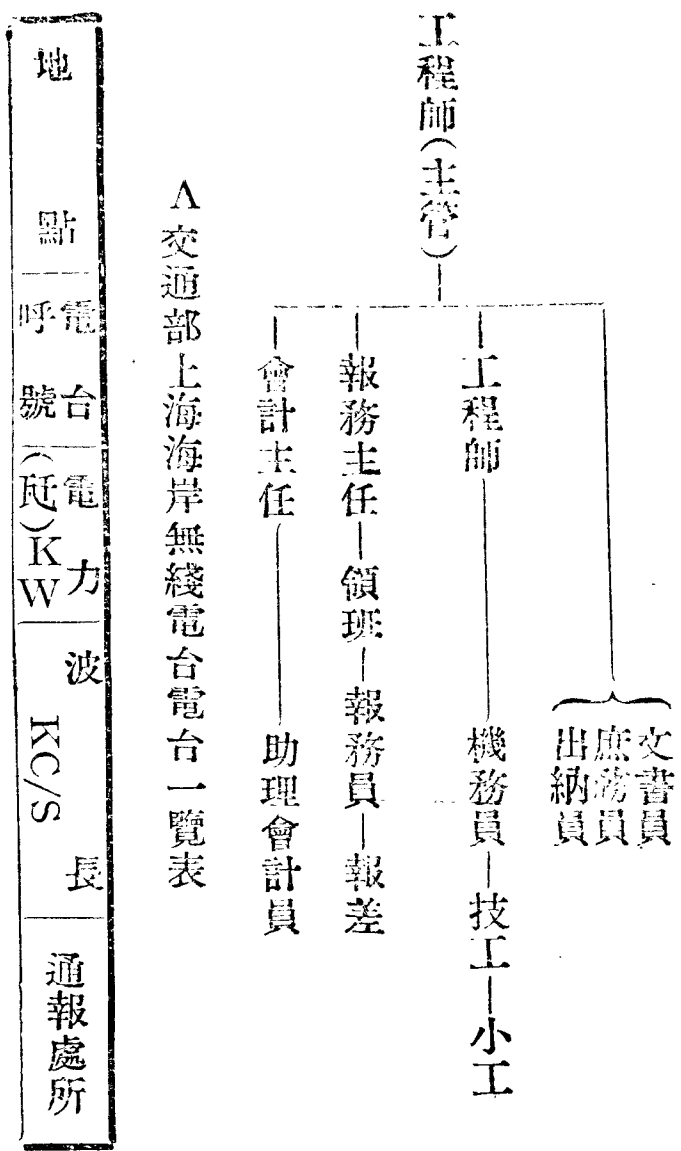 工程師(主管)
文書員
庶務員
出納員
工程師—機務員—技工—小工
報務主任—領班—報務員—報差
會計主任—助理會計員
A交通部上海海岸無綫電台電台一覽表
地點
電台
呼號
電力
(瓩)KW
波長
KC/S
通報處所